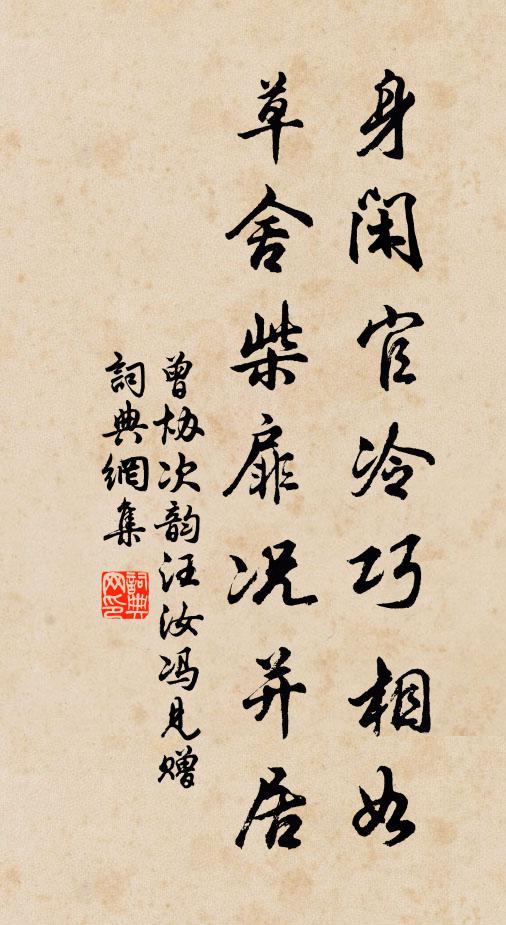 身闲官冷巧相如
草舍柴扉况并居
曾协次韵汪汝冯见赠
詞典網集
詞典
网印